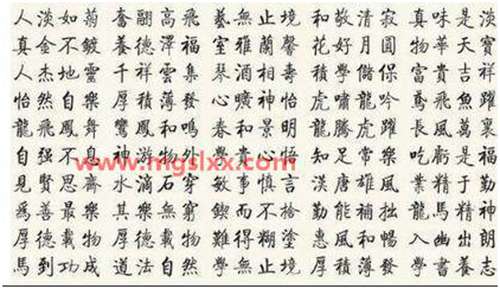 人淡如菊 奮翮高飛 藝無止境 和敬清寂 真味是淡
真金不鍍 養德澤福 室雅蘭馨 花好月圓 物華天寶
人杰地靈 千祥雲集 琴酒相壽 積學儲保 富貴吉祥
怡然自樂 厚積薄發 心曠神怡 虎嘯龍吟 鳶飛魚躍
龍飛鳳舞 鸞鳳和鳴 春和景明 龍騰虎躍 長風萬裏
自强不息 神游物外 學貴心悟 知足常樂 吃虧是福
www.mgslxx.com
見賢思齋 水滴石穿 敏事慎言 漢唐雄風 業精于勤
為善最樂 其樂無窮 鍥而不捨 勤能補拙 龍馬精神
厚德載物 厚德載物 難得糊塗 惠風和暢 入幽出朗
馬到功成 道法自然 學無止境 厚積薄發 學書養志